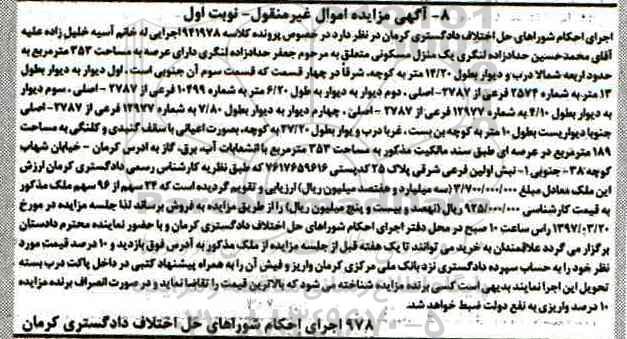 ۸- آگهی مزایده اموال غیرمنقول- نوبت اول
اجرای احکام شوراهای حل اختلاف دادگستری کرمان در نظر دارد در خصوص پرونده کلاسه ۹۴۱۹۷۸اجرایی له خانم آسیه خلیل زاده علیه
آقای محمدحسین حدادزاده لنگری یک منزل مسکونی متعلق به مرحوم جعفر حدادزاده لنگری دارای عرصه به مساحت ۳۵۳ مترمربع به
حدود اربعه شمالا درب و دیوار بطول ۱۴/۲۰ متر به کوچه، شرقا در چهار قسمت که قسمت سوم آن جنوبی است. اول دیوار به دیوار بطول
۱۳ متر به شماره ۲۵۷۴ فرعی از ۲۷۸۷- اصلی، دوم دیوار به دیوار به طول ۶/۲۰ متر به شماره ۱۰۴۹۹ فرعی از ۲۷۸۷ - اصلی، سوم دیوار
به دیوار بطول ۴/۱۰ به شماره ۱۲۹۷۷ فرعی از ۲۷۸۷ - اصلی، چهارم دیوار به دیوار بطول ۷/۸۰ به شماره ۱۲۹۷۷ فرعی از ۲۷۸۷- اصلی
جنوبا دیواریست بطول ۱۰ متر به کوچه بن بست، غربا درب و دیوار بطول ۲۷/۲۰ به کوچه، بصورت اعیانی با سقف گنبدی و کلنگی به مساحت
۱۸۹ مترمربع در عرصه ای طبق سند مالکیت مذکور به مساحت ۳۵۳ مترمربع با انشعابات آب، برق، گاز به آدرس کرمان - خیابان شهاب
کوچه ۳۸- جنوبی ۱- نبش اولین فرعی شرقی پلاک ۲۵ کدپستی ۷۶۱۷۶۵۹۶۱۶ که طبق نظریه کارشناس رسمی دادگستری کرمان ارزش
این ملک معادل مبلغ ۳/۷۰۰/۰۰۰/۰۰۰ (سه میلیارد و هفتصد میلیون ریال) ارزیابی و تقویم گردیده است که ۲۴ سهم از ۹۶ سهم ملک مذکور
به قیمت کارشناسی ۹۲۵/۰۰۰/۰۰۰ ریال (نهصد و بیست و پنج میلیون ریال) را از طریق مزایده به فروش برساند لذا جلسه مزایده در مورخ
۱۳۹۷/۰۳/۲۰ راس ساعت ۱۰ صبح در محل دفتر اجرای احکام شوراهای حل اختلاف دادگستری کرمان و با حضور نماینده محترم دادستان
برگزار می گردد علاقمندان به خرید می توانند تا یک هفته قبل از جلسه مزایده از ملک مذکور به آدرس فوق بازدید و ۱۰ درصد قیمت مورد
نظر خود را به حساب سپرده دادگستری نزد بانک ملی مرکزی کرمان واریز و فیش آن را به همراه پیشنهاد کتبی در داخل پاکت درب بسته
تحویل این اجرا نمایند بدیهی است کسی برنده مزایده شناخته می شود که بالاترین قیمت را تقاضا نماید و در صورت انصراف برنده مزایده
۱۰ درصد واریزی به نفع دولت ضبط خواهد شد.
۹۷۸ اجرای احکام شوراهای حل اختلاف دادگستری کرمان